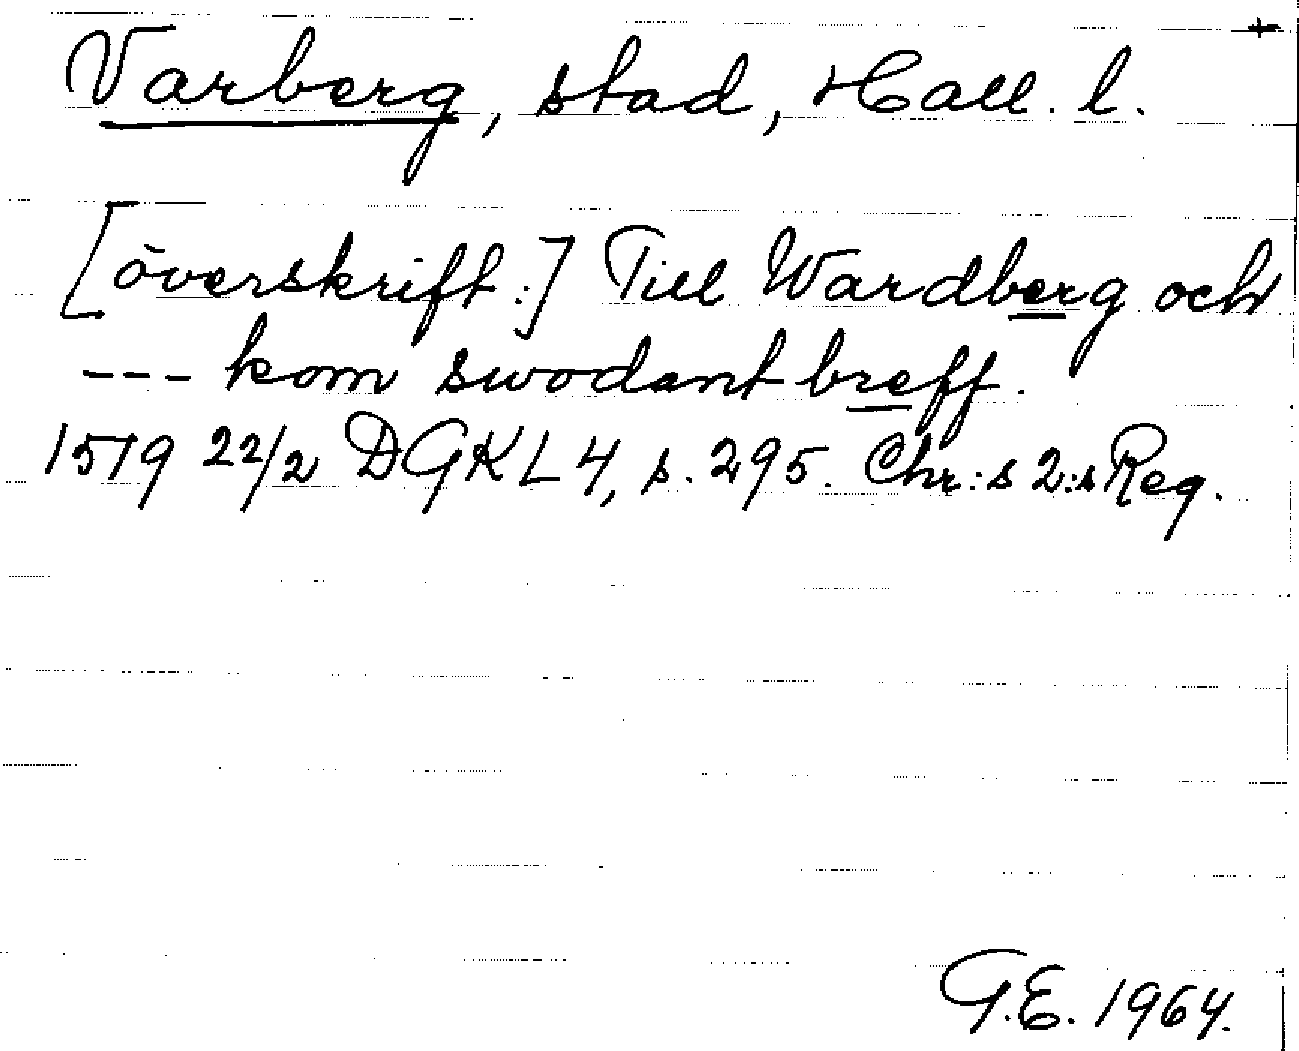 +
Varberg, stad, Hall. l.
[överskrift:] Till Wardberg och
--- kom swodant breff.
1519 22/2 DGKL 4, s. 295. Chr:s 2:s Reg.
G.E. 1964.